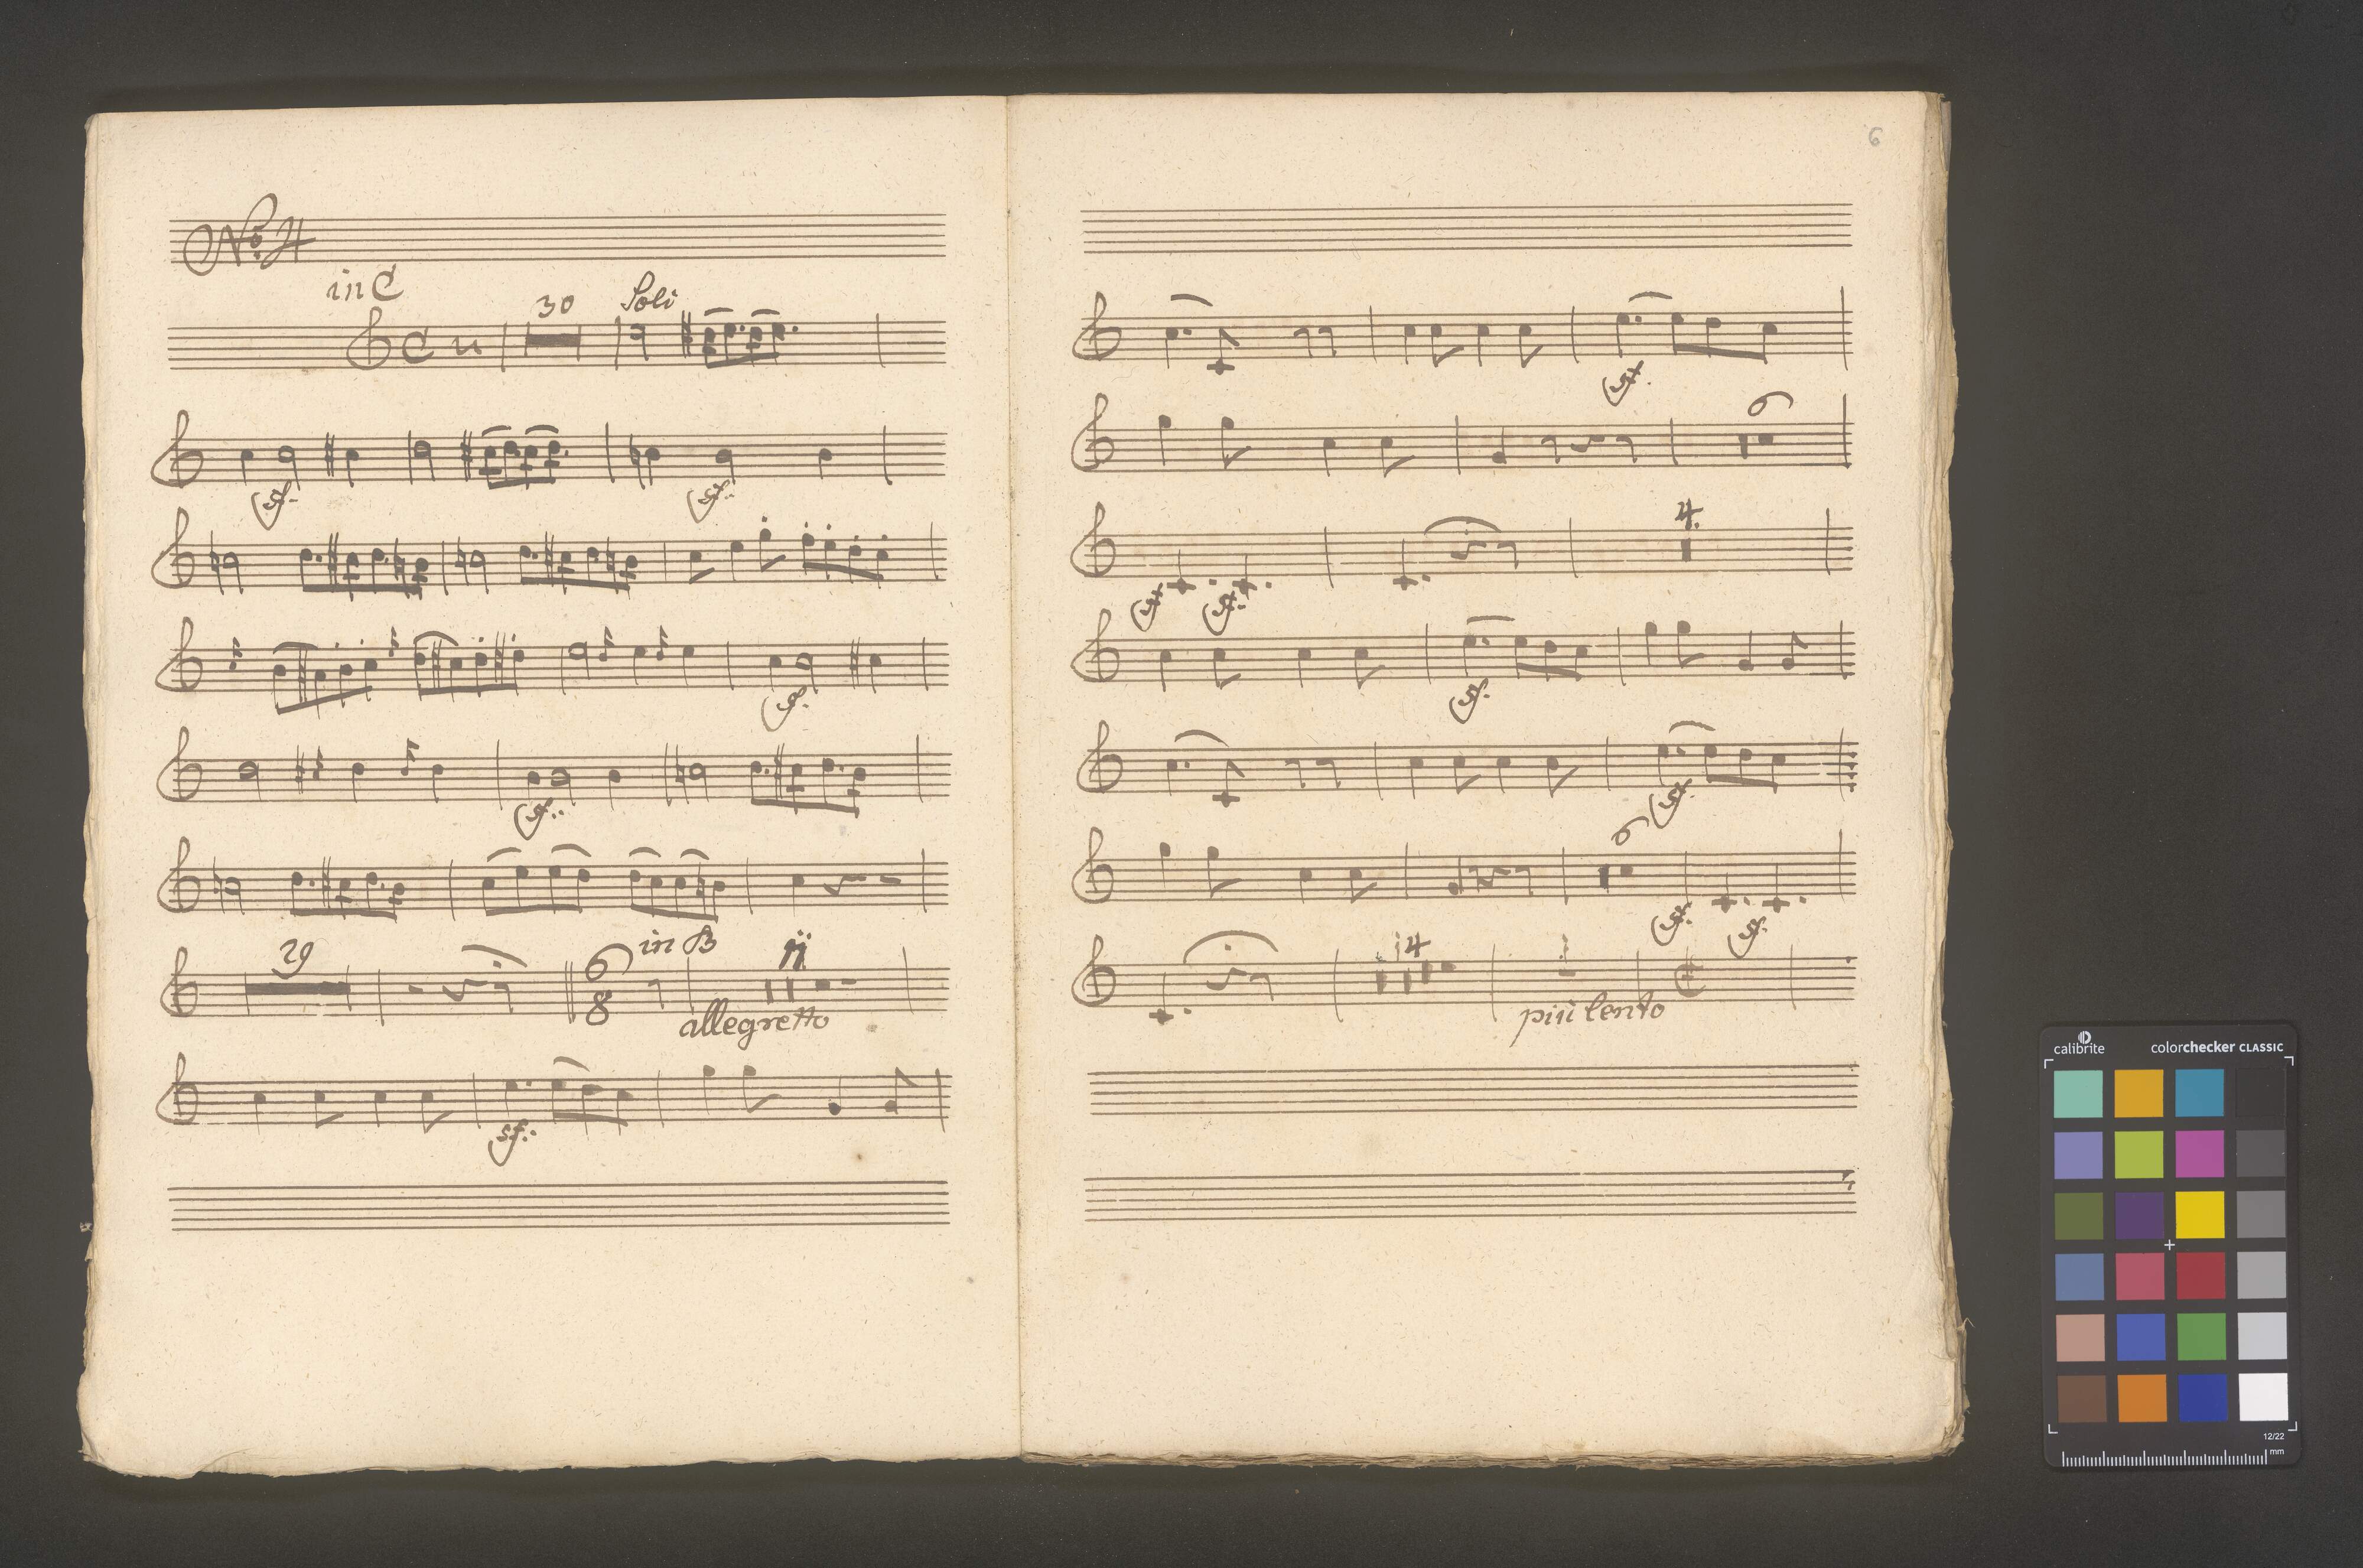 No. 4
in C
30 Soli
sf.
sf.
sf.
sf.
29 in B 11
6
8
allegretto
sf.
6
sf.
6
4.
sf. sf.
sf.
sf.
6
sf. sf.
14
più lento
calibrite colorchecker CLASSIC
12/22
mm